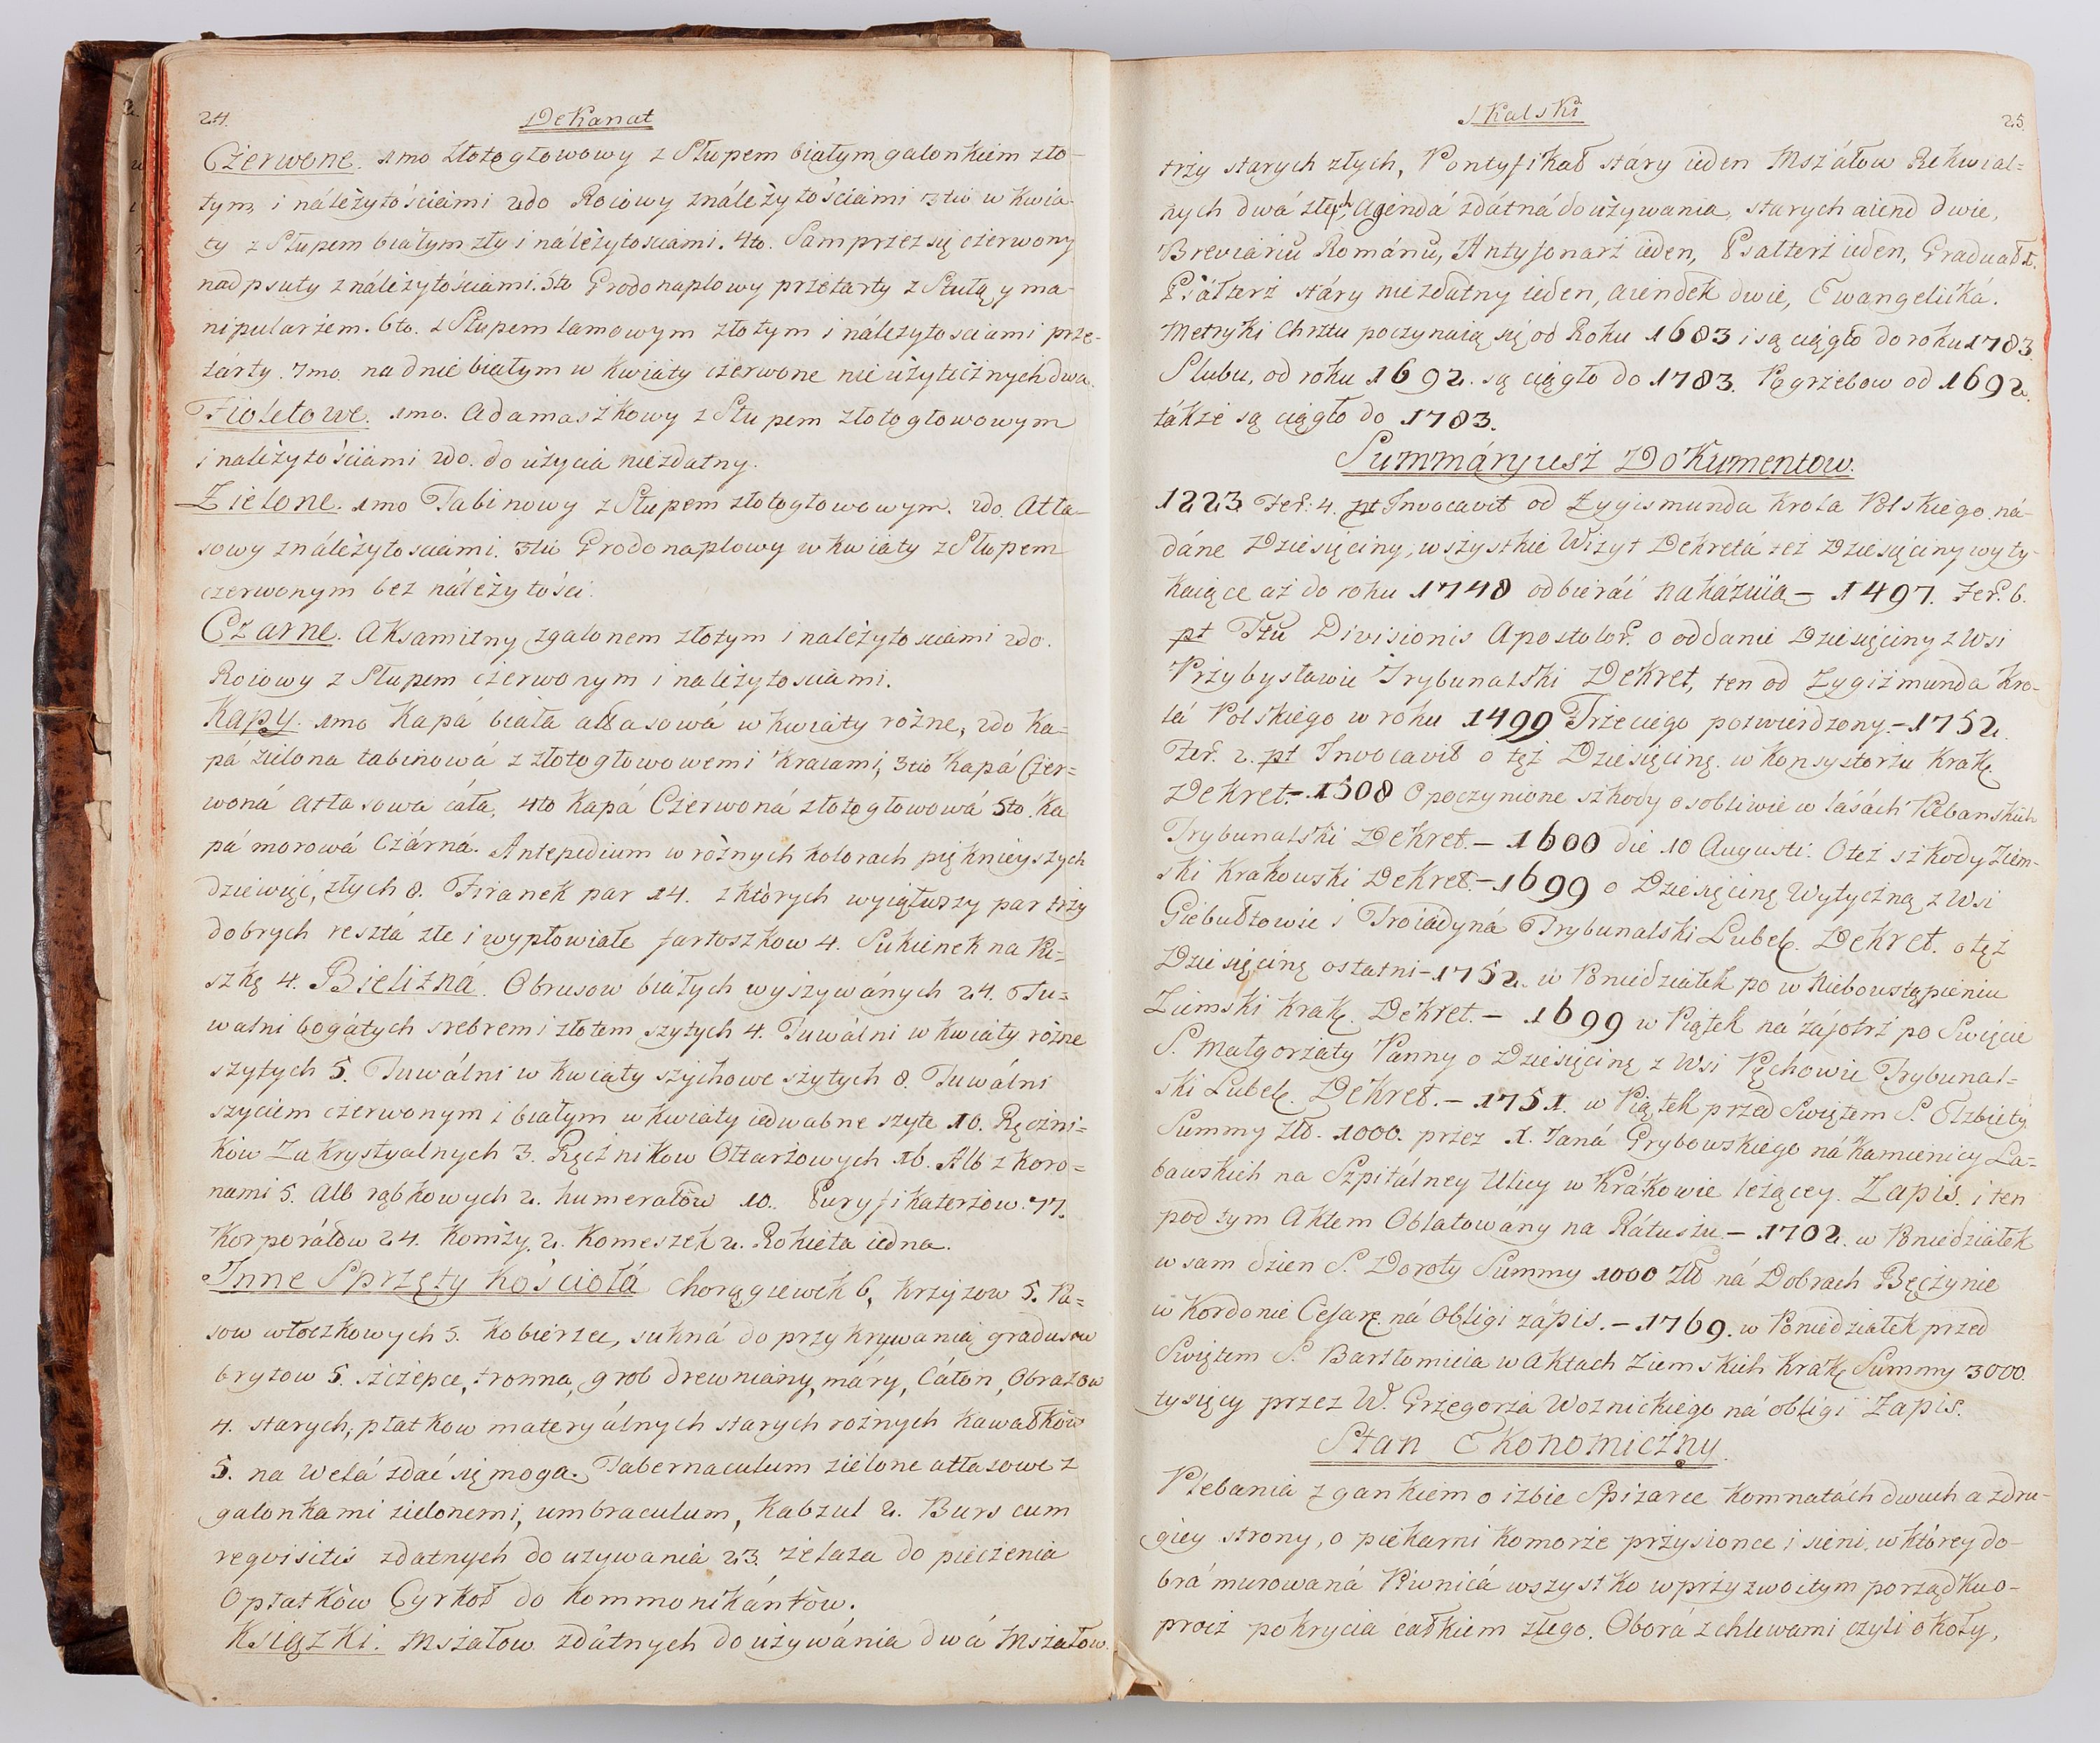 24.
Dekanat
Czerwone. 1mo złotogłowowy z Słupem białym galonkiem zło-
tym, i náleżytościámi 2do Roiowy ználeżytościámi 3tio w kwia-
ty z Słupem białym zły i należytosciami. 4to. Sam przez się czerwony
nadpsuty z náleżytościámi. 5to Grodonaplowy przetarty z Stułą y ma-
nipularżem. 6to. z Słupem lamowym złotym i náleżytosciami prze-
tárty. 7mo. na dnie białym w kwiáty czerwone nie użytecznych dwa.
Fioletowe. 1mo. Adamaszkowy z Słupem złotogłowowym
i należytościámi 2do. do użycia niezdatny.
Zielone. 1mo Tabinowy z Słupem złotogłowowym. 2do. Atła-
sowy z náleżytosciami. 3tio Grodonaplowy w kwiaty z Słupem
czerwonym bez náleżytości.
Czarne. Aksamitny z galonem złotym i należytosciami 2do.
Roiowy z Słupem czerwonym i należytosciámi.
Kapy. 1mo Kapá biała atłasowá w kwiaty rożne, 2do Ka=
pá zielona tabinowá z złotogłowowemi Kraiami, 3tio Kapá Czer=
woná Atłasowa cáła, 4to Kapá Czerwoná złotogłowowá 5to. Ka
pá morowá Czárná. Antepedium w rożnych kolorach pięknieyszych
dziewięć, złych 8. Firanek par 14. z ktorych wyiąwszy par trzy
dobrych resztá złe i wypłowiałe fartoszkow 4. Sukienek na Pu=
szkę 4. Bielizná. Obrusow białych wyszywánych 24. Tu=
walni bogátych srebrem i złotem szytych 4. Tuwálni w kwiáty rożne
szytych 5. Tuwálni w kwiáty szychowe szytych 8. Tuwálni
szyciem czerwonym i białym w kwiaty iedwabne szyte 10. Ręczni=
ków Zakrystyalnych 3. Ręcznikow Ołtarżowych 16. Alb z koro=
nami 5. Alb rąbkowych 2. humerałow 10. Puryfikaterzow 77.
Korporáłow 24. Komży 2. Komeszek 2. Rokieta iedna.
Inne Sprzęty Kościołá Chorągiewek 6, Krzyżow 5. Pa=
sow włoczkowych 5. Kobierzec, sukná do przykrywania gradusow
brytow 5. szczepce, tronna, grob drewniány, máry, Cáłon, Obrazow
4. starych, płatkow materyálnych starych rożnych kawałków
5. na Welá zdać się mogą. Tabernaculum zielone atłasowe z
galonkami zielonemi, umbraculum, Kabzul 2. Burs cum
reqvisitis zdatnych do uzywaniá 23. żelaza do pieczenia
Opłatków Cyrkoł do Kommonikántów.
Ksiązki. Mszałow zdátnych do używánia dwá Mszałow.
Skalski
25.
trzy starych złych, Pontyfikał stáry ieden Mszáłow Rekwial=
nych dwá złych, Agendá zdátná do używania, starych aiend dwie,
Breviariū Románū, Antyfonarz ieden, Psałterz ieden, Graduał 1.
Psáłterz stáry niezdatny ieden, aiendek dwie, Ewangeliczká.
Metryki Chrztu poczynaią się od Roku 1683 i są ciągło do roku 1783.
Slubu, od roku 1692. są ciągło do 1783. Pogrzebow od 1692.
tákże są ciągło do 1783.
Summáryusz Dokumentow.
1223 Fer: 4. pt Invocavit od Zygismunda Krola Polskiego ná-
dáne Dziesięciny, wszystkie Wizyt Dekretá też Dziesięciny wyty-
kaiące aż do roku 1748 odbieráć nakázuią – 1497. Fer. 6.
pt Ftū Divisionis Apostolor. o oddanie Dziesięciny z Wsi
Przybysławic Trybunalski Dekret, ten od Zygiżmunda Kro-
lá Polskiego w roku 1499 Trzeciego potwierdzony. – 1752.
Fer. 2. pt Invocavit o tęż Dziesięcinę w Konsystorzu Krak.
Dekret. – 1508 O poczynione szkody osobliwie w lásách Plebanskich
Trybunalski Dekret. – 1600 die 10 Augusti. O też szkody Ziem-
ski Krakowski Dekret. – 1699 o Dziesięcinę Wytyczną z Wsi
Giebułtowic i Troiadyná Trybunalski Lubel. Dekret. o tęż
Dziesięcinę ostatni – 1752. w Poniedziałek po w Niebowstąpieniu
Ziemski Krak. Dekret. – 1699 w Piątek ná zájotrz po Swięcie
S. Małgorzaty Panny o Dziesięcinę z Wsi Pęchowic Trybunal=
ski Lubel. Dekret. – 1751. w Piątek przed Swiętem S. Elzbiety
Summy Złł. 1000. przez X. Janá Grybowskiego ná Kamienicy La=
bawskich na Szpitálney Ulicy w Krákowie leżącey. Zapis. i ten
pod tym Aktem Oblatowány na Rátuszu – 1702. w Poniedziałek
w sam dzien S. Doroty Summy 1000 Złł ná Dobrach Bęczynie
w Kordonie Cesar. ná Obligi zápis. – 1769. w Poniedziałek przed
Swiętem S. Bartłomieia w Aktach Ziemskich Krak. Summy 3000.
tysięcy przez W. Grzegorza Woznickiego ná obligi Zapis.
Stan Ekonomiczny.
Plebania z gankiem o izbie Spizarce komnatách dwuch a z dru-
giey strony, o piekarni komorze przysionce i sieni. w ktorey do-
brá murowaná Piwnicá wszystko w przyzwoitym porządku o-
procz pokrycia całkiem złego. Oborá z chlewami czyli okoły,